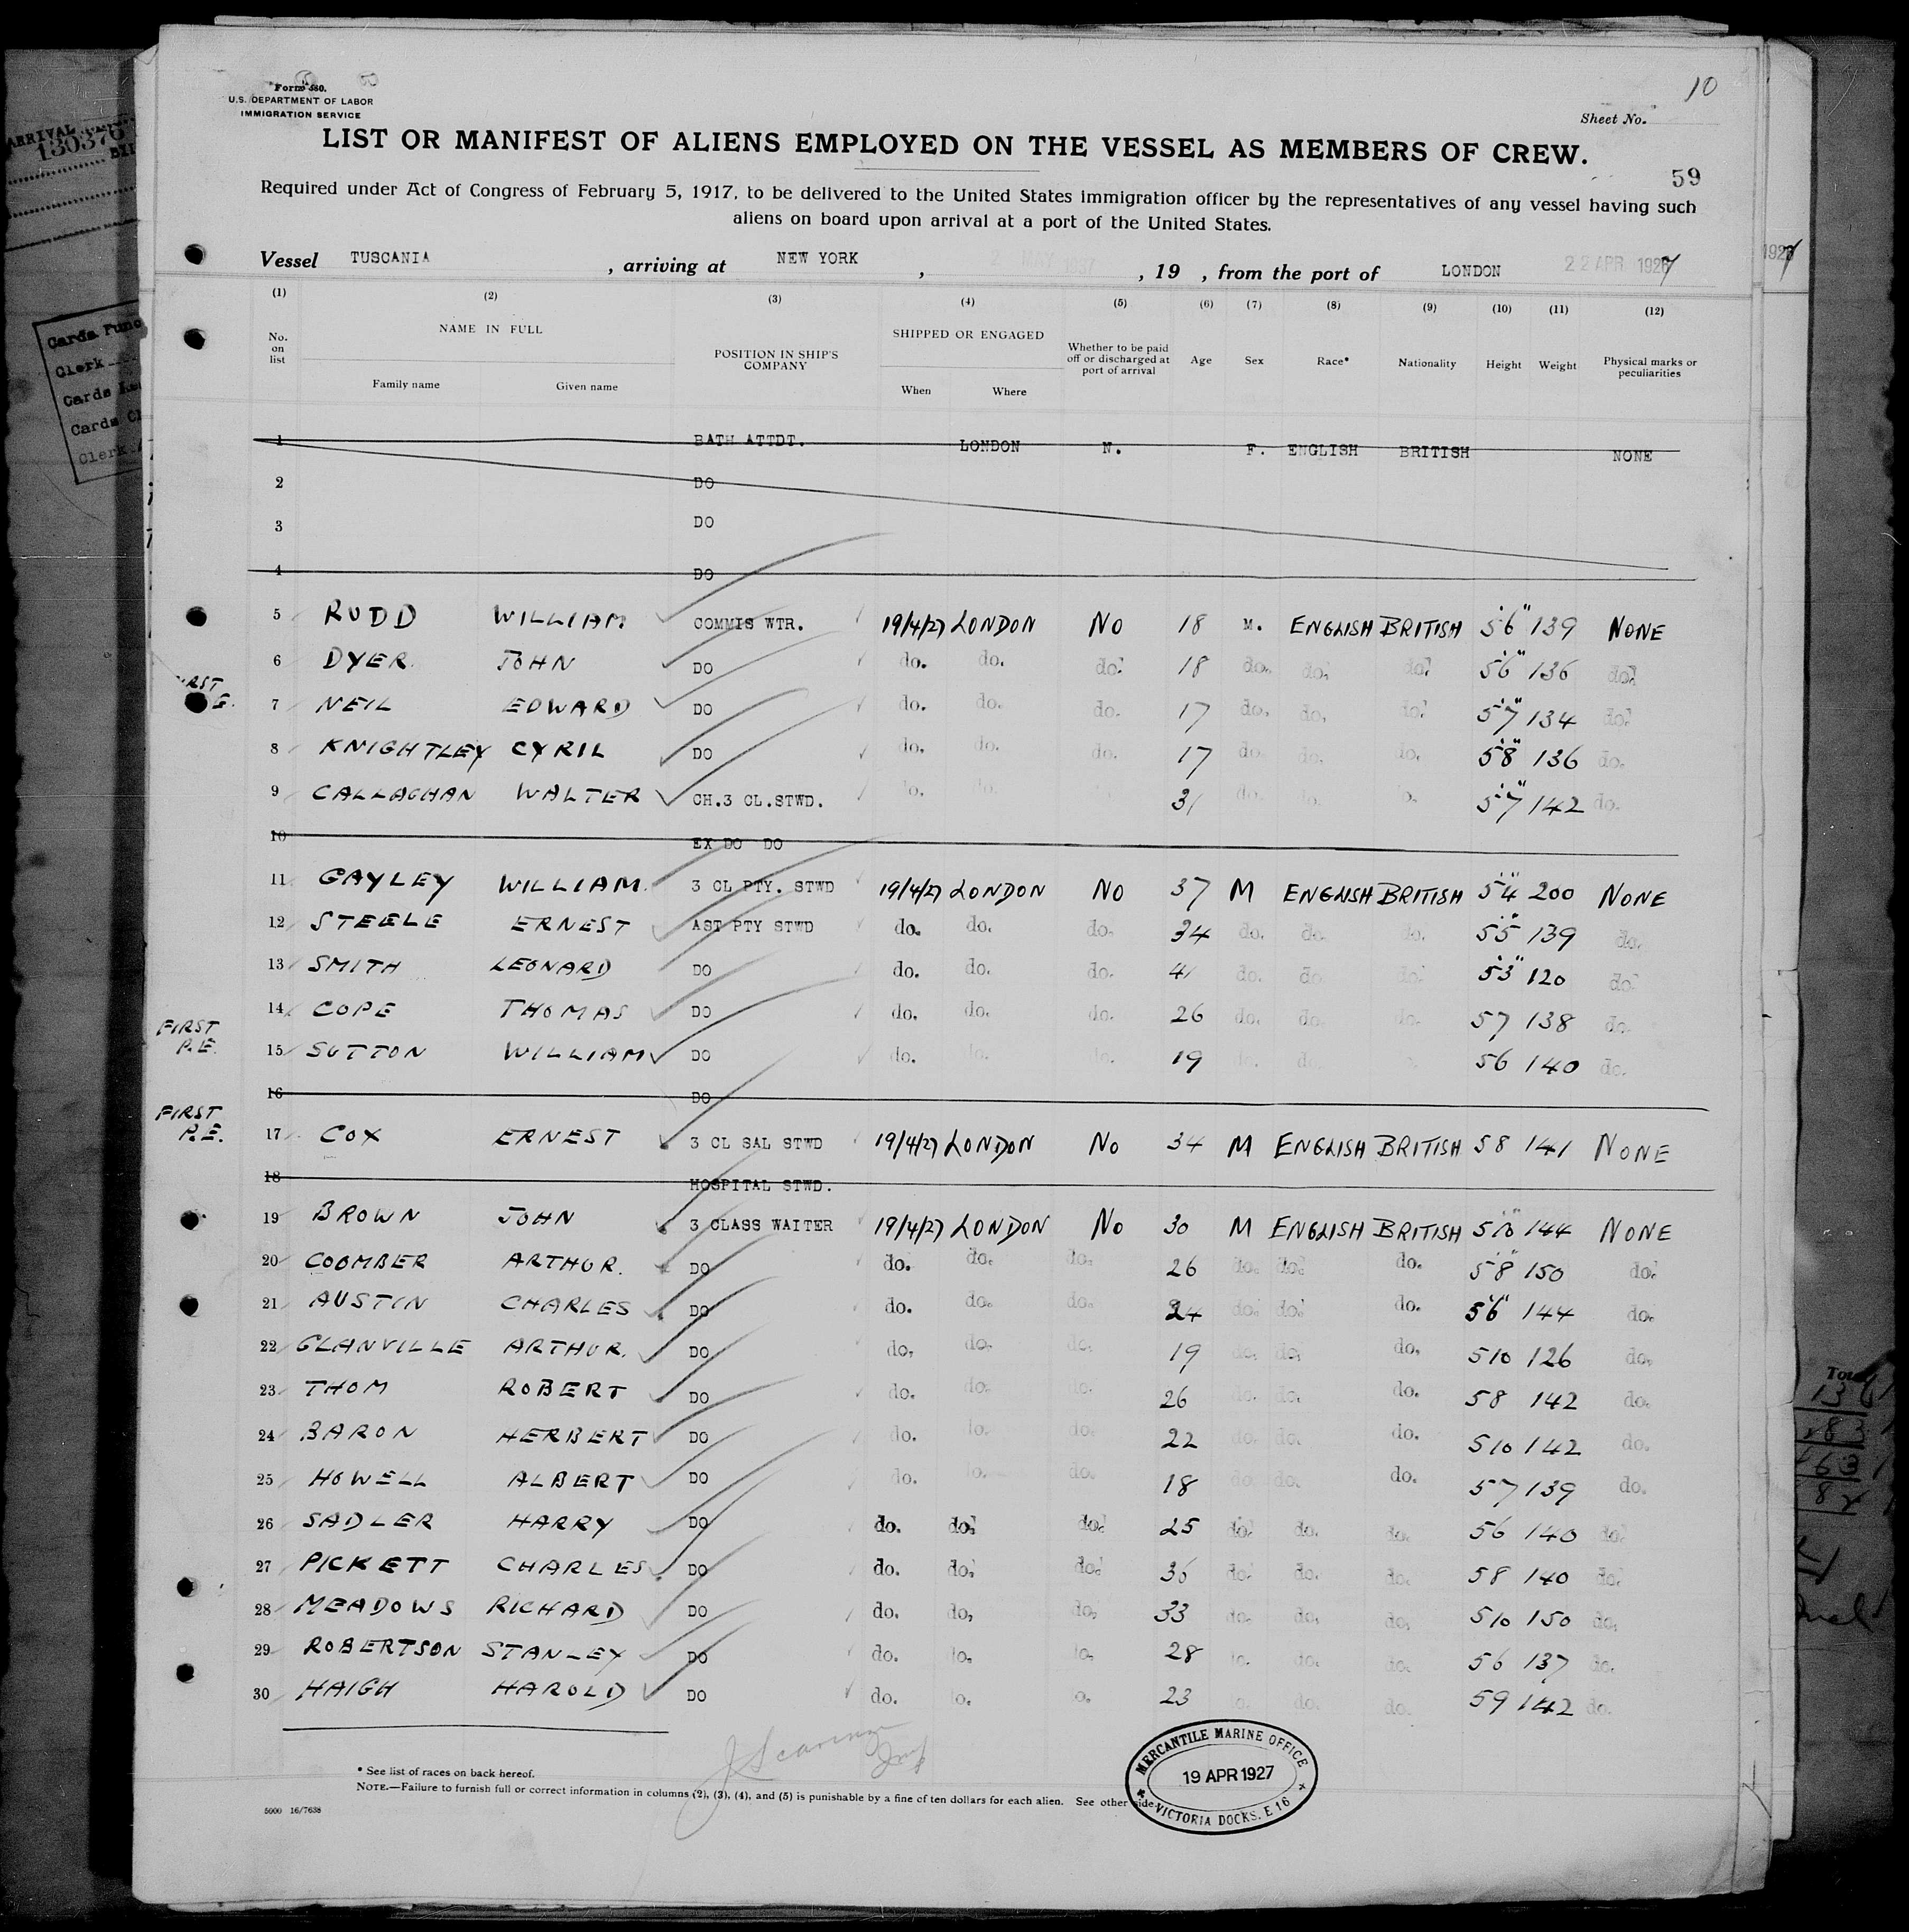 Form 680.
U.S. DEPARTMENT OF LABOR
IMMIGRATION SERVICE
10
Sheet No.
LIST OR MANIFEST OF ALIENS EMPLOYED ON THE VESSEL AS MEMBERS OF CREW.
59
Required under Act of Congress of February 5, 1917, to be delivered to the United States immigration officer by the representatives of any vessel having such
aliens on board upon arrival at a port of the United States.
Vessel TUSCANIA , arriving at NEW YORK , 2 MAY , 19 , from the port of LONDON 22 APR 1927
(1) (2) (3) (4) (5) (6) (7) (8) (9) (10) (11) (12)
No. on list NAME IN FULL Family name Given name POSITION IN SHIP'S COMPANY SHIPPED OR ENGAGED When Where Whether to be paid off or discharged at port of arrival Age Sex Race* Nationality Height Weight Physical marks or peculiarities
1 BATH ATTDT. LONDON N. F. ENGLISH BRITISH NONE
2 DO
3 DO
4 DO
5 RUDD WILLIAM COMMIS WTR. 19/4/27 LONDON NO 18 M. ENGLISH BRITISH 5'6" 139 NONE
6 DYER JOHN DO do. do. do. 18 do. do. do. 5'6" 136 do.
7 NEIL EDWARD DO do. do. do. 17 do. do. do. 5'7" 134 do.
8 KNIGHTLEY CYRIL DO do. do. do. 17 do. do. do. 5'8" 136 do.
9 CALLAGHAN WALTER CH.3 CL.STWD. do. do. 31 do. do. do. 5'7" 142 do.
10 EX DO DO
11 GAYLEY WILLIAM 3 CL PTY. STWD 19/4/27 LONDON NO 37 M ENGLISH BRITISH 5'4" 200 NONE
12 STEELE ERNEST AST PTY STWD do. do. do. 34 do. do. do. 5'5" 139 do.
13 SMITH LEONARD DO do. do. do. 41 do. do. do. 5'3" 120 do.
14 COPE THOMAS DO do. do. do. 26 do. do. do. 57 138 do.
FIRST P.E. 15 SUTTON WILLIAM DO do. do. do. 19 do. do. 56 140 do.
16 DO
FIRST P.E. 17 COX ERNEST 3 CL SAL STWD 19/4/27 LONDON NO 34 M ENGLISH BRITISH 58 141 NONE
18 HOSPITAL STWD.
19 BROWN JOHN 3 CLASS WAITER 19/4/27 LONDON NO 30 M ENGLISH BRITISH 5'10" 144 NONE
20 COOMBER ARTHUR. DO do. do. do. 26 do. do. do. 5'8" 150 do.
21 AUSTIN CHARLES DO do. do. do. 24 do. do. do. 5'6" 144 do.
22 GLANVILLE ARTHUR. DO do. do. do. 19 do. do. do. 510 126 do.
23 THOM ROBERT DO do. do. do. 26 do. do. do. 58 142 do.
24 BARON HERBERT DO do. do. do. 22 do. do. do. 510 142 do.
25 HOWELL ALBERT DO do. do. do. 18 do. do. do. 57 139 do.
26 SADLER HARRY DO do. do. do. 25 do. do. do. 56 140 do.
27 PICKETT CHARLES DO do. do. do. 36 do. do. do. 58 140 do.
28 MEADOWS RICHARD DO do. do. do. 33 do. do. do. 510 150 do.
29 ROBERTSON STANLEY DO do. do. do. 28 do. do. do. 56 137 do.
30 HAIGH HAROLD DO do. do. do. 23 do. do. do. 59 142 do.
* See list of races on back hereof.
NOTE.—Failure to furnish full or correct information in columns (2), (3), (4), and (5) is punishable by a fine of ten dollars for each alien. See other side.
5000 16/7638
MERCANTILE MARINE OFFICE
19 APR 1927
VICTORIA DOCKS. E 16